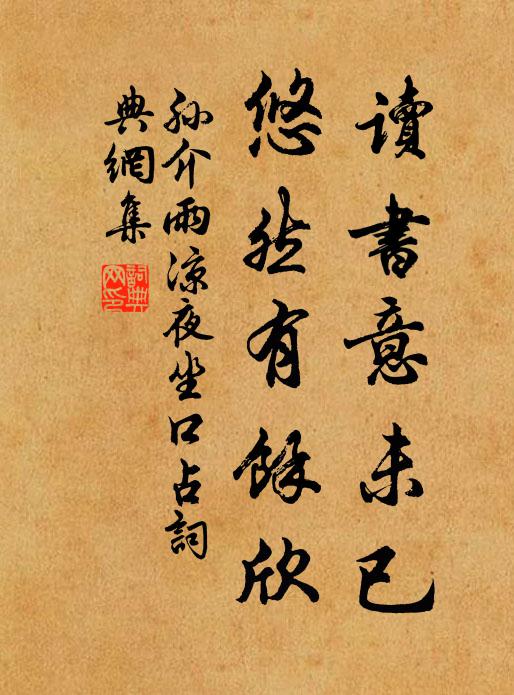 讀書意未已
悠然有餘欣
孙介雨涼夜坐口占詞
典網集
詞典網印